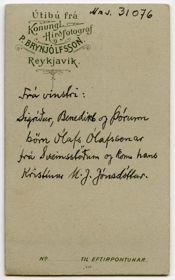 Mus. 31076
Útibú frá
Konungl.
Hirðfotograf
P. BRYNJÓLFSSON.
Reykjavík.
Frá vinstri:
Sigríður, Benedikt og Þórunn
börn Ólafs Ólafssonar
frá Sveinsstöðum og konu hans
Kristínar M. J. Jónsdóttur.
NO. TIL EFTIRPÖNTUNAR.